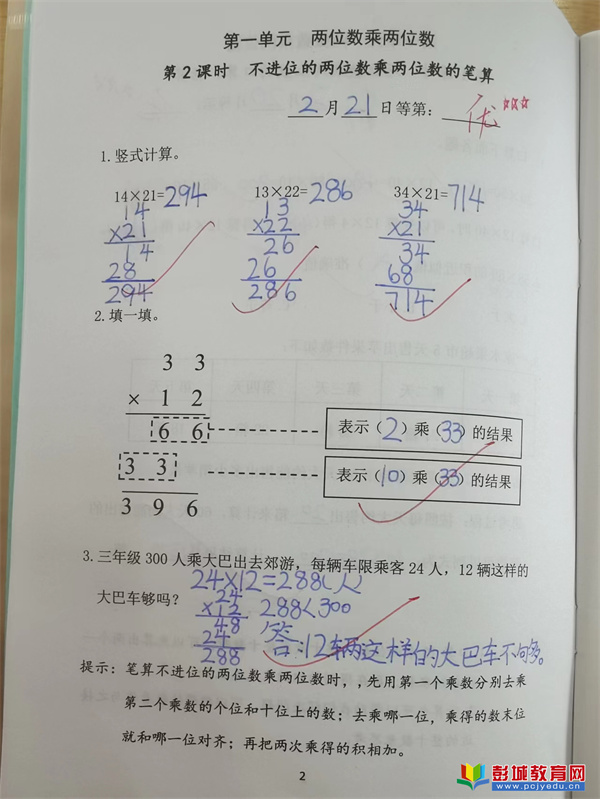 第一单元 两位数乘两位数
第2课时 不进位的两位数乘两位数的笔算
2月21日等第：优
1.竖式计算。
14×21=294 13×22=286 34×21=714
14 13 34
×21 ×22 ×21
14 26 34
28 26 68
294 286 714
2.填一填。
3 3
× 1 2
6 6 表示（2）乘（33）的结果
3 3 表示（10）乘（33）的结果
3 9 6
3.三年级300人乘大巴出去郊游，每辆车限乘客24人，12辆这样的
大巴车够吗？
24×12=288(人)
24
×12 288<300
48
24
288 答:12辆这样的大巴车不够。
提示：笔算不进位的两位数乘两位数时，,先用第一个乘数分别去乘
第二个乘数的个位和十位上的数；去乘哪一位，乘得的数末位
就和哪一位对齐；再把两次乘得的积相加。
2
彭城教育网
www.pcjyedu.cn